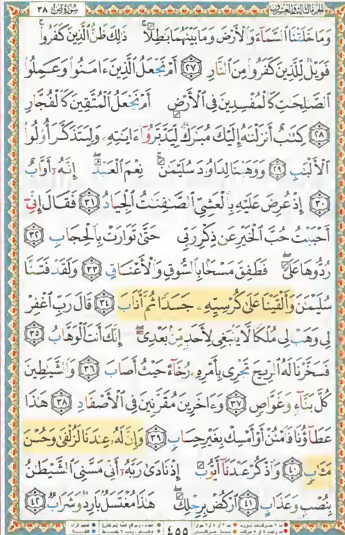 الجزء الثالث والعشرون سورة ص ٣٨
وَمَا خَلَقْنَا السَّمَآءَ وَالْأَرْضَ وَمَا بَيْنَهُمَا بَٰطِلًا ۚ ذَٰلِكَ ظَنُّ الَّذِينَ كَفَرُوا ۚ
فَوَيْلٌ لِّلَّذِينَ كَفَرُوا مِنَ النَّارِ ﴿٢٧﴾ أَمْ نَجْعَلُ الَّذِينَ ءَامَنُوا وَعَمِلُوا
الصَّٰلِحَٰتِ كَالْمُفْسِدِينَ فِي الْأَرْضِ أَمْ نَجْعَلُ الْمُتَّقِينَ كَالْفُجَّارِ
﴿٢٨﴾ كِتَٰبٌ أَنزَلْنَٰهُ إِلَيْكَ مُبَٰرَكٌ لِّيَدَّبَّرُوا ءَايَٰتِهِ وَلِيَتَذَكَّرَ أُولُوا
الْأَلْبَٰبِ ﴿٢٩﴾ وَوَهَبْنَا لِدَاوُۥدَ سُلَيْمَٰنَ ۚ نِعْمَ الْعَبْدُ ۖ إِنَّهُۥ أَوَّابٌ
﴿٣٠﴾ إِذْ عُرِضَ عَلَيْهِ بِالْعَشِيِّ الصَّٰفِنَٰتُ الْجِيَادُ ﴿٣١﴾ فَقَالَ إِنِّي
أَحْبَبْتُ حُبَّ الْخَيْرِ عَن ذِكْرِ رَبِّي حَتَّىٰ تَوَارَتْ بِالْحِجَابِ ﴿٣٢﴾
رُدُّوهَا عَلَيَّ ۖ فَطَفِقَ مَسْحًا بِالسُّوقِ وَالْأَعْنَاقِ ﴿٣٣﴾ وَلَقَدْ فَتَنَّا
سُلَيْمَٰنَ وَأَلْقَيْنَا عَلَىٰ كُرْسِيِّهِۦ جَسَدًا ثُمَّ أَنَابَ ﴿٣٤﴾ قَالَ رَبِّ اغْفِرْ
لِي وَهَبْ لِي مُلْكًا لَّا يَنبَغِي لِأَحَدٍ مِّنۢ بَعْدِي ۖ إِنَّكَ أَنتَ الْوَهَّابُ ﴿٣٥﴾
فَسَخَّرْنَا لَهُ الرِّيحَ تَجْرِي بِأَمْرِهِۦ رُخَآءً حَيْثُ أَصَابَ ﴿٣٦﴾ وَالشَّيَٰطِينَ
كُلَّ بَنَّآءٍ وَغَوَّاصٍ ﴿٣٧﴾ وَءَاخَرِينَ مُقَرَّنِينَ فِي الْأَصْفَادِ ﴿٣٨﴾ هَٰذَا
عَطَآؤُنَا فَامْنُنْ أَوْ أَمْسِكْ بِغَيْرِ حِسَابٍ ﴿٣٩﴾ وَإِنَّ لَهُۥ عِندَنَا لَزُلْفَىٰ وَحُسْنَ
مَـَٔابٍ ﴿٤٠﴾ وَاذْكُرْ عَبْدَنَآ أَيُّوبَ إِذْ نَادَىٰ رَبَّهُۥٓ أَنِّي مَسَّنِيَ الشَّيْطَٰنُ
بِنُصْبٍ وَعَذَابٍ ﴿٤١﴾ ارْكُضْ بِرِجْلِكَ ۖ هَٰذَا مُغْتَسَلٌ بَارِدٌ وَشَرَابٌ ﴿٤٢﴾
٤٥٥